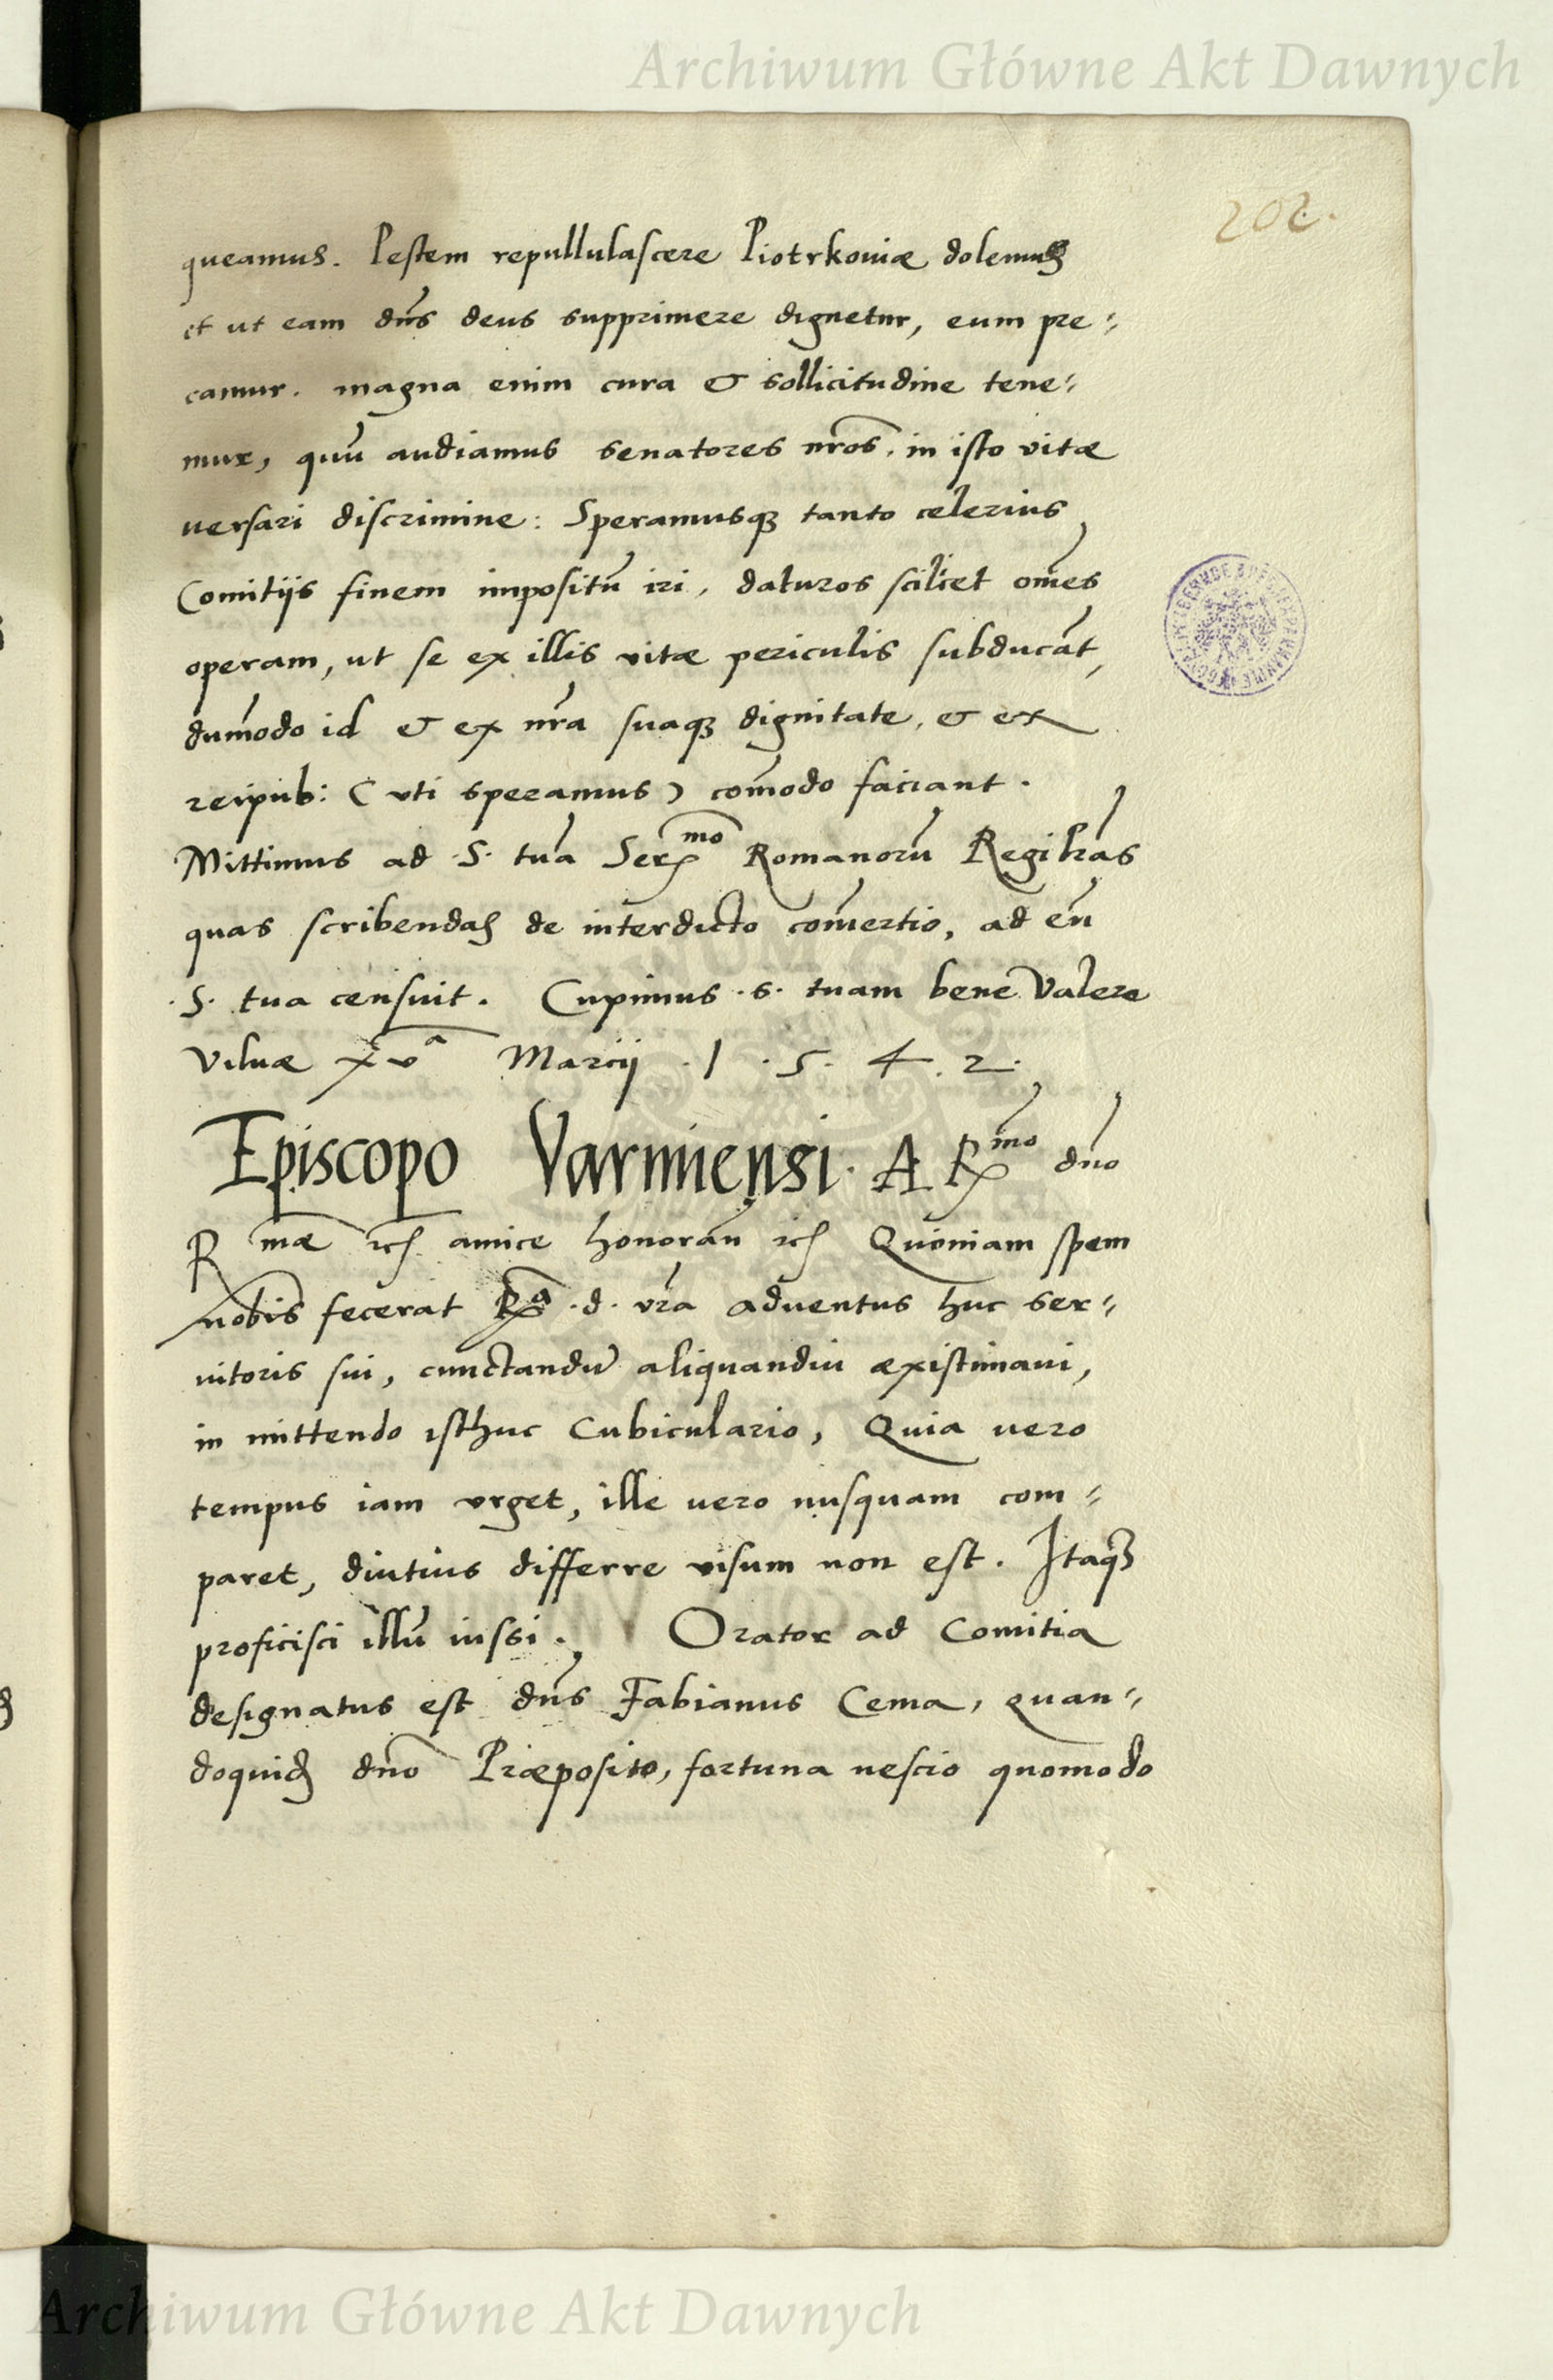 Archiwum Główne Akt Dawnych
202.
queamus. Pestem repullulascere Piotrkouiæ dolemus
et ut eam dns deus supprimere dignetur, eum pre⸗
camur. magna enim cura & sollicitudine tene⸗
mur, quū audiamus senatores nros. in isto vitæ
uersari discrimine: Speramusq3 tanto celerius
Comitijs finem impositū iri, daturos scilicet omēs
operam, ut se ex illis vitæ periculis subducāt,
dum̄odo id & ex nrā suaq3 dignitate, & ex
reipub: (vti speramus) com̄odo faciant.
Mittimus ad .S. tuā Ser^mo Romanorū Regis lrās
quas scribendas de interdicto com̄ertio, ad eū
.S. tua censuit. Cupimus .s. tuam bene Valere
Vilnæ xv^a Marcij .1.5.4.2.
Episcopo Varmiensi. A R^mo dno
R mæ etc amice honorān etc Quoniam spem
nobis fecerat R^a .d. vrā aduentus huc ser⸗
uitoris sui, cunctandū aliquandiu æxistimaui,
in mittendo isthuc Cubiculario, Quia uero
tempus iam vrget, ille uero nusquam com⸗
paret, diutius differre visum non est. Itaq3
proficisci illū iussi. Orator ad Comitia
designatus est dns Fabianus Cema, quan⸗
doquid dno Præposito, fortuna nescio quomodo
Archiwum Główne Akt Dawnych